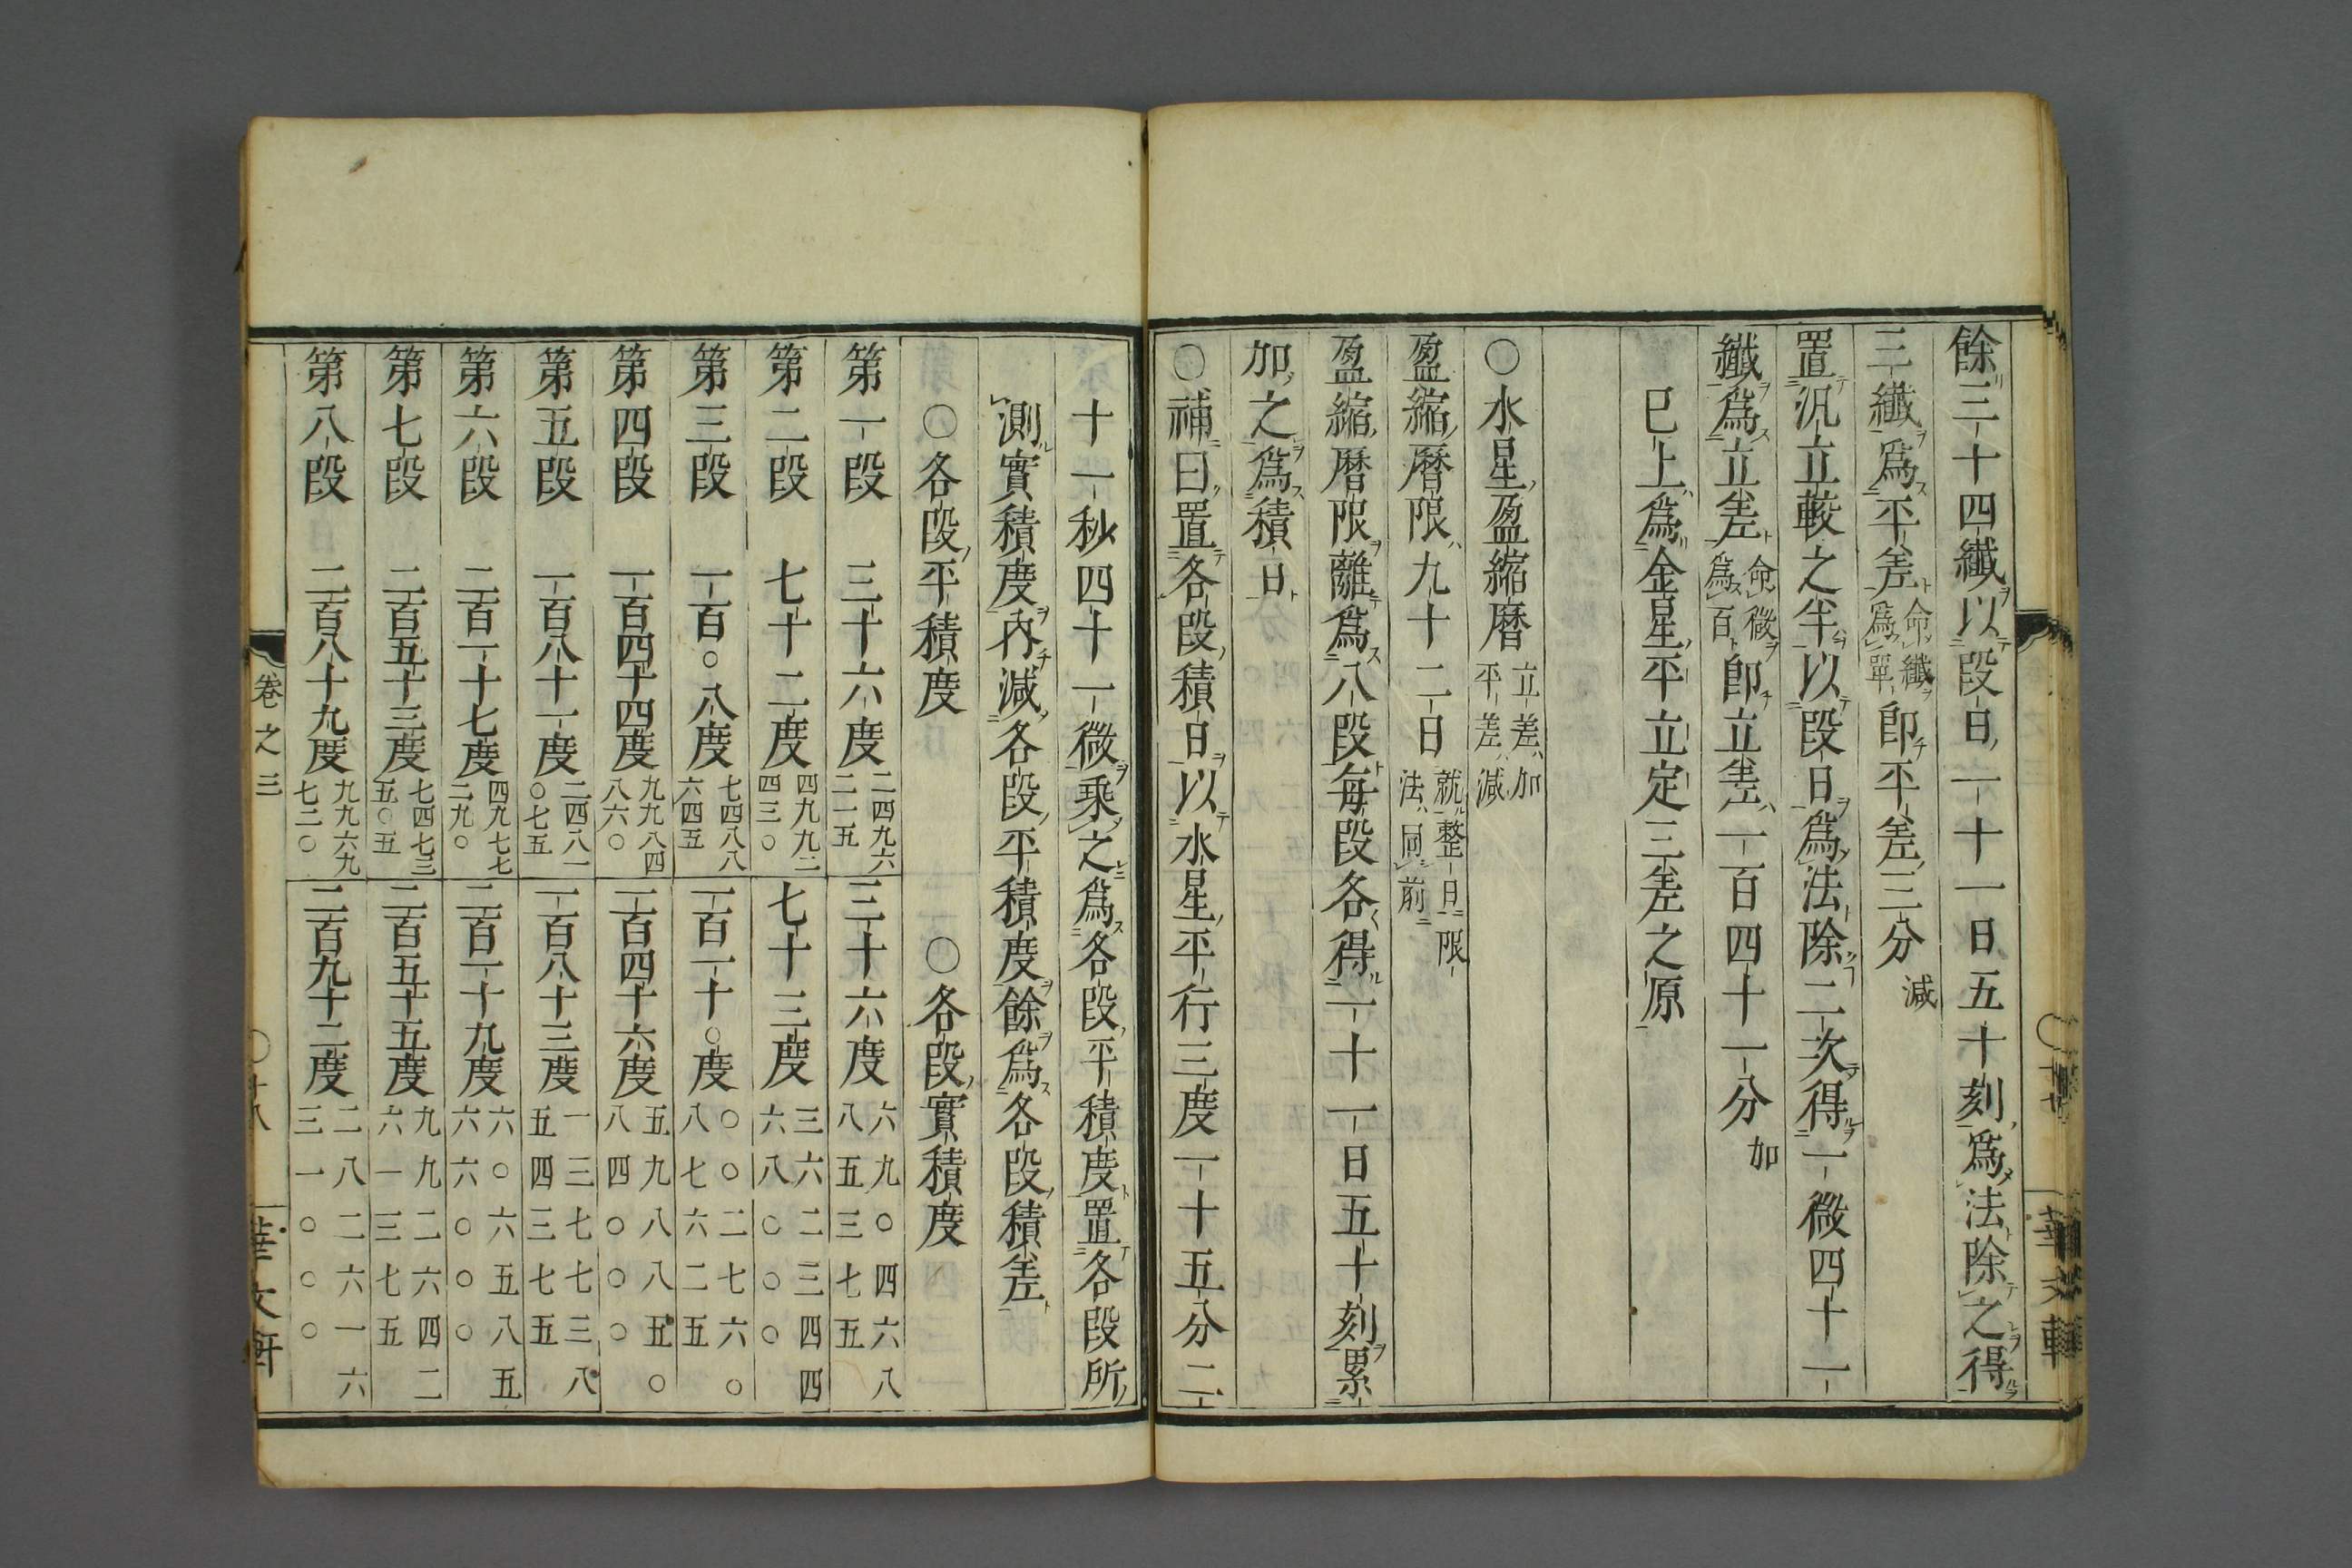 餘三十四纎以段日一十一日五十刻爲法除之得
三纎爲平差命纎爲單卽平差三分減
置汎立較之半以段日爲法除二次得一微四十一
纎爲立差命微爲百卽立差一百四十一分加
已上爲金星平立定三差之原
○水星盈縮暦立差加平差減
盈縮暦限九十二日就整日限法同前
盈縮暦限離爲八段每段各得一十一日五十刻累
加之爲積日
○補曰置各段積日以水星平行三度一十五分二
十一秒四十一微乘之爲各段平積度置各段所
測實積度內減各段平積度餘爲各段積差
○各段平積度 ○各段實積度
第一段 三十六度二四九六二一五 三十六度六九〇四六八八五三七五
第二段 七十二度四九九二四三〇 七十三度三六二三四四六八〇〇〇
第三段 一百〇八度七四八八六四五 一百一十〇度〇〇二七六〇八七六二五
第四段 一百四十四度九九八四八六〇 一百四十六度五九八八五〇八四〇〇〇
第五段 一百八十一度二四八一〇七五 一百八十三度一三七七三八五四三七五
第六段 二百一十七度四九七七二九〇 二百一十九度六〇六五八五六六〇〇〇
第七段 二百五十三度七四七三五〇五 二百五十五度九九二六四二六一三七五
第八段 二百八十九度九九六九七二〇 二百九十二度二八二六一六三一〇〇〇
卷之三
○十八